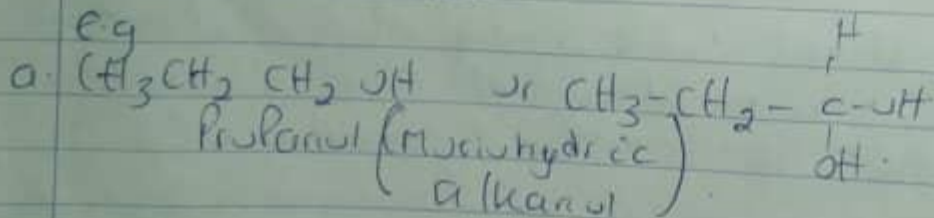 e.g
H
a. CH3CH2 CH2 OH or CH3-CH2- C-OH
Propanol (Monohydric OH.
alkanol).